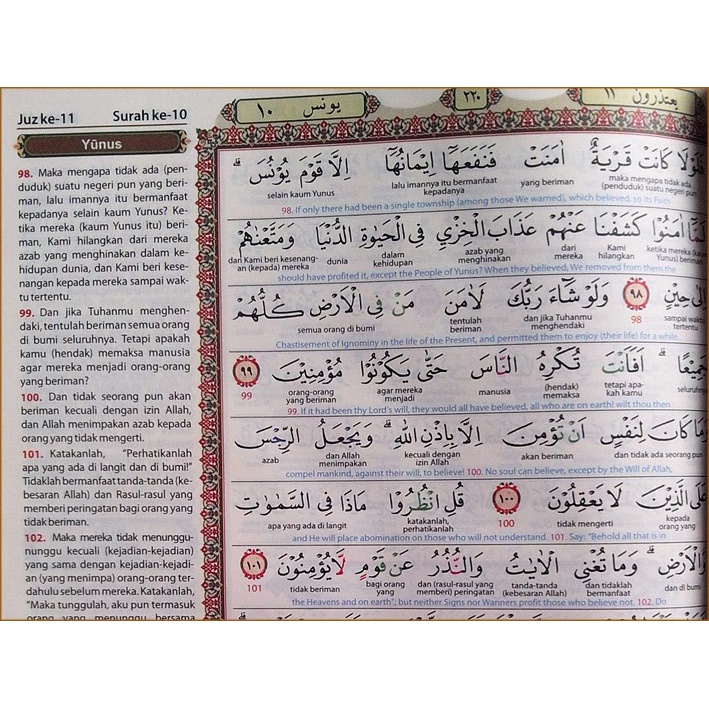 Juz ke-11 Surah ke-10
Yūnus
98. Maka mengapa tidak ada (pen-
duduk) suatu negeri pun yang beri-
man, lalu imannya itu bermanfaat
kepadanya selain kaum Yunus? Ke-
tika mereka (kaum Yunus itu) beri-
man, Kami hilangkan dari mereka
azab yang menghinakan dalam ke-
hidupan dunia, dan Kami beri kese-
nangan kepada mereka sampai wak-
tu tertentu.
99. Dan jika Tuhanmu menghen-
daki, tentulah beriman semua orang
di bumi seluruhnya. Tetapi apakah
kamu (hendak) memaksa manusia
agar mereka menjadi orang-orang
yang beriman?
100. Dan tidak seorang pun akan
beriman kecuali dengan izin Allah,
dan Allah menimpakan azab kepada
orang yang tidak mengerti.
101. Katakanlah, "Perhatikanlah
apa yang ada di langit dan di bumi!"
Tidaklah bermanfaat tanda-tanda (ke-
besaran Allah) dan Rasul-rasul yang
memberi peringatan bagi orang yang
tidak beriman.
102. Maka mereka tidak menunggu-
nunggu kecuali (kejadian-kejadian)
yang sama dengan kejadian-kejadi-
an (yang menimpa) orang-orang ter-
dahulu sebelum mereka. Katakanlah,
"Maka tunggulah, aku pun termasuk
orang yang menunggu bersama
يعتذرون ١١ ٢٢٠ يونس ١٠
فَلَوْلَا كَانَتْ قَرْيَةٌ اٰمَنَتْ فَنَفَعَهَآ اِيْمَانُهَآ اِلَّا قَوْمَ يُوْنُسَۗ
maka mengapa tidak ada (penduduk) suatu negeri pun yang beriman lalu imannya itu bermanfaat kepadanya selain kaum Yunus
98. If only there had been a single township (among those We warned), which believed, so its Faith
لَمَّآ اٰمَنُوْا كَشَفْنَا عَنْهُمْ عَذَابَ الْخِزْيِ فِى الْحَيٰوةِ الدُّنْيَا وَمَتَّعْنٰهُمْ
ketika mereka (kaum Yunus) beriman Kami hilangkan dari mereka azab yang menghinakan dalam kehidupan dunia dan Kami beri kesenang-an (kepada) mereka
should have profited it, except the People of Yunus? When they believed, We removed from them the
اِلٰى حِيْنٍ ٩٨ وَلَوْ شَآءَ رَبُّكَ لَاٰمَنَ مَنْ فِى الْاَرْضِ كُلُّهُمْ
sampai waktu tertentu 98 dan jika Tuhanmu menghendaki tentulah beriman semua orang di bumi
Chastisement of Ignominy in the life of the Present, and permitted them to enjoy (their life) for a while.
جَمِيْعًاۗ اَفَاَنْتَ تُكْرِهُ النَّاسَ حَتّٰى يَكُوْنُوْا مُؤْمِنِيْنَ ٩٩
seluruhnya tetapi apa-kah kamu (hendak) memaksa manusia agar mereka menjadi orang-orang yang beriman 99
99. If it had been thy Lord's will, they would all have believed, all who are on earth! wilt thou then
وَمَا كَانَ لِنَفْسٍ اَنْ تُؤْمِنَ اِلَّا بِاِذْنِ اللّٰهِۗ وَيَجْعَلُ الرِّجْسَ
dan tidak ada seorang pun akan beriman kecuali dengan izin Allah dan Allah menimpakan azab
compel mankind, against their will, to believe! 100. No soul can believe, except by the Will of Allah,
عَلَى الَّذِيْنَ لَا يَعْقِلُوْنَ ١٠٠ قُلِ انْظُرُوْا مَاذَا فِى السَّمٰوٰتِ
kepada orang yang tidak mengerti 100 katakanlah, perhatikanlah apa yang ada di langit
and He will place abomination on those who will not understand. 101. Say: "Behold all that is in
وَالْاَرْضِۗ وَمَا تُغْنِى الْاٰيٰتُ وَالنُّذُرُ عَنْ قَوْمٍ لَّا يُؤْمِنُوْنَ ١٠١
dan di bumi dan tidaklah bermanfaat tanda-tanda (kebesaran Allah) dan (rasul-rasul yang memberi) peringatan bagi orang yang tidak beriman 101
the Heavens and on earth"; but neither Signs nor Wanners profit those who believe not. 102. Do